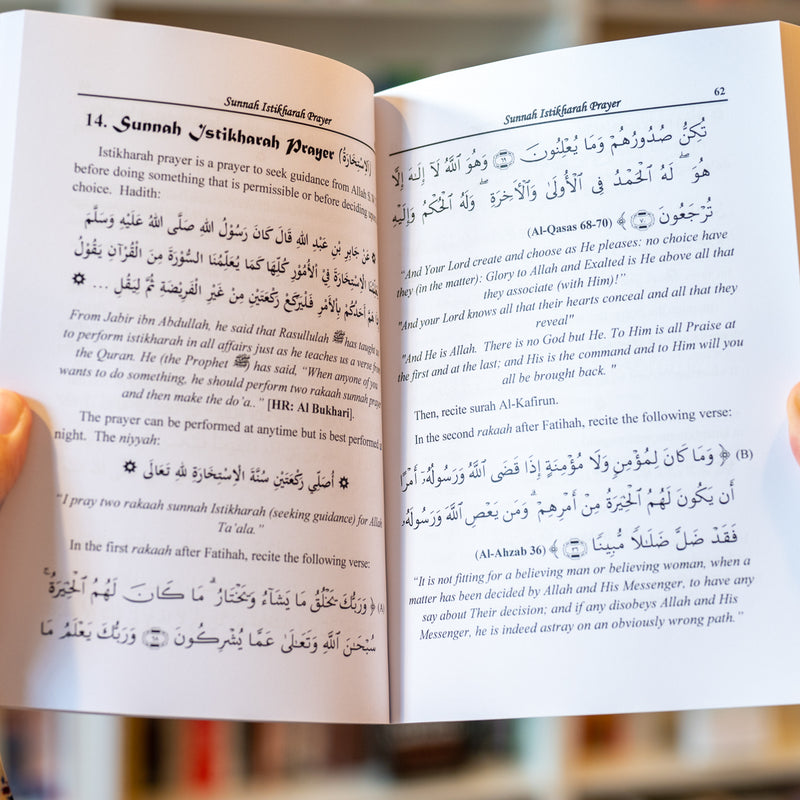 Sunnah Istikharah Prayer
14. Sunnah Istikharah Prayer (الإِسْتِخَارَةُ)
Istikharah prayer is a prayer to seek guidance from Allah S.
before doing something that is permissible or before deciding upon
choice. Hadith:
عَنْ جَابِرِ بْنِ عَبْدِ اللهِ قَالَ كَانَ رَسُوْلُ اللهِ صَلَّى اللهُ عَلَيْهِ وَسَلَّمَ
يُعَلِّمُنَا الْإِسْتِخَارَةَ فِيْ الْأُمُوْرِ كُلِّهَا كَمَا يُعَلِّمُنَا السُّوْرَةَ مِنَ الْقُرْآنِ يَقُوْلُ
هَمَّ أَحَدُكُمْ بِالْأَمْرِ فَلْيَرْكَعْ رَكْعَتَيْنِ مِنْ غَيْرِ الْفَرِيْضَةِ ثُمَّ لِيَقُلْ ...
From Jabir ibn Abdullah, he said that Rasullulah ﷺ has taught us
to perform istikharah in all affairs just as he teaches us a verse from
the Quran. He (the Prophet ﷺ) has said, “When anyone of you
wants to do something, he should perform two rakaah sunnah prayer
and then make the do’a..” [HR: Al Bukhari].
The prayer can be performed at anytime but is best performed at
night. The niyyah:
أُصَلِّي رَكْعَتَيْنِ سُنَّةَ الْإِسْتِخَارَةِ لِلهِ تَعَالَى
“I pray two rakaah sunnah Istikharah (seeking guidance) for Allah
Ta’ala.”
In the first rakaah after Fatihah, recite the following verse:
(A) ﴿ وَرَبُّكَ يَخْلُقُ مَا يَشَآءُ وَيَخْتَارُ ۗ مَا كَانَ لَهُمُ ٱلْخِيَرَةُ ۚ
سُبْحَـٰنَ ٱللَّهِ وَتَعَـٰلَىٰ عَمَّا يُشْرِكُونَ ۝٦٨ وَرَبُّكَ يَعْلَمُ مَا
Sunnah Istikharah Prayer 62
تُكِنُّ صُدُورُهُمْ وَمَا يُعْلِنُونَ ۝٦٩ وَهُوَ ٱللَّهُ لَآ إِلَـٰهَ إِلَّا
هُوَ ۖ لَهُ ٱلْحَمْدُ فِى ٱلْأُولَىٰ وَٱلْـَٔاخِرَةِ ۖ وَلَهُ ٱلْحُكْمُ وَإِلَيْهِ
تُرْجَعُونَ ۝٧٠ ﴾ (Al-Qasas 68-70)
“And Your Lord create and choose as He pleases: no choice have
they (in the matter): Glory to Allah and Exalted is He above all that
they associate (with Him)!”
"And your Lord knows all that their hearts conceal and all that they
reveal"
"And He is Allah. There is no God but He. To Him is all Praise at
the first and at the last; and His is the command and to Him will you
all be brought back. "
Then, recite surah Al-Kafirun.
In the second rakaah after Fatihah, recite the following verse:
(B) ﴿ وَمَا كَانَ لِمُؤْمِنٍ وَلَا مُؤْمِنَةٍ إِذَا قَضَى ٱللَّهُ وَرَسُولُهُۥٓ أَمْرًا
أَن يَكُونَ لَهُمُ ٱلْخِيَرَةُ مِنْ أَمْرِهِمْ ۗ وَمَن يَعْصِ ٱللَّهَ وَرَسُولَهُۥ
فَقَدْ ضَلَّ ضَلَـٰلًا مُّبِينًا ۝٣٦ ﴾ (Al-Ahzab 36)
“It is not fitting for a believing man or believing woman, when a
matter has been decided by Allah and His Messenger, to have any
say about Their decision; and if any disobeys Allah and His
Messenger, he is indeed astray on an obviously wrong path.”